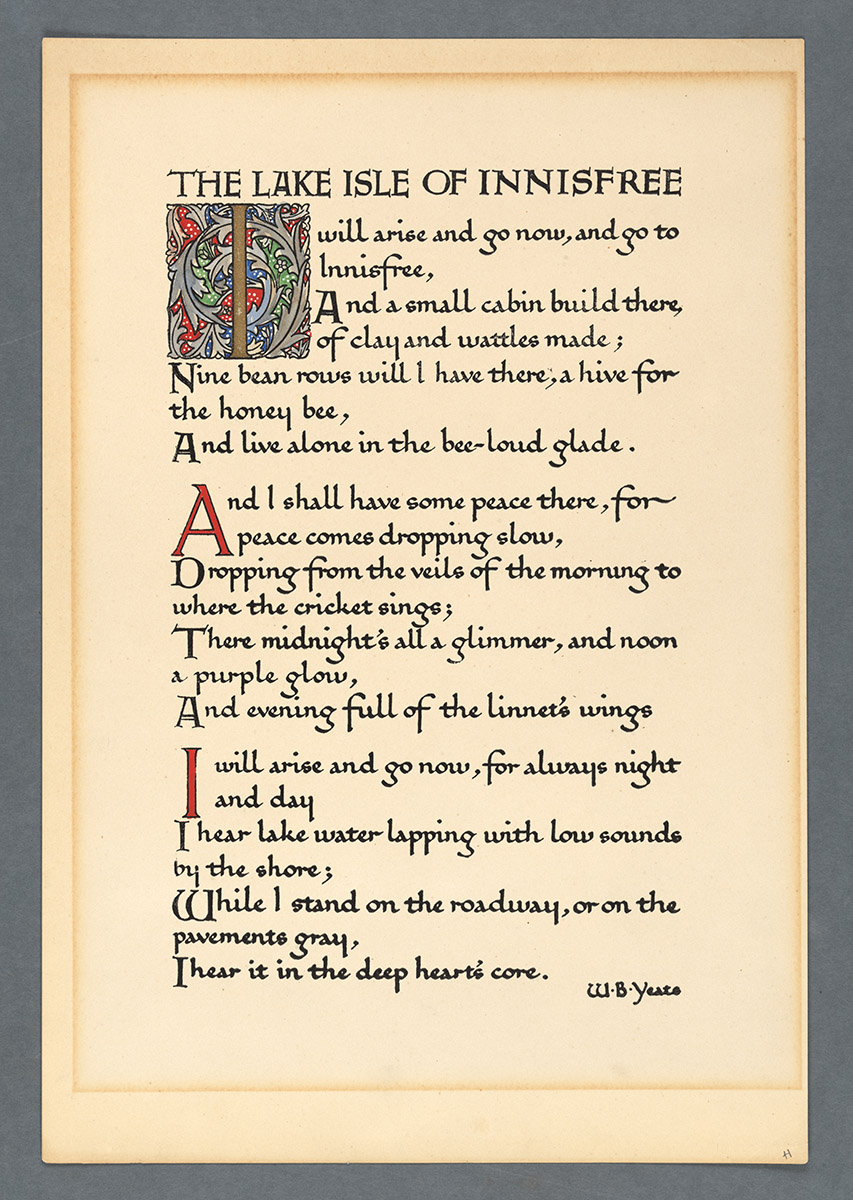 THE LAKE ISLE OF INNISFREE
I will arise and go now, and go to
Innisfree,
And a small cabin build there,
of clay and wattles made;
Nine bean rows will I have there, a hive for
the honey bee,
And live alone in the bee-loud glade.
And I shall have some peace there, for
peace comes dropping slow,
Dropping from the veils of the morning to
where the cricket sings;
There midnight's all a glimmer, and noon
a purple glow,
And evening full of the linnet's wings
I will arise and go now, for always night
and day
I hear lake water lapping with low sounds
by the shore;
While I stand on the roadway, or on the
pavements gray,
I hear it in the deep heart's core.
W·B·Yeats
H